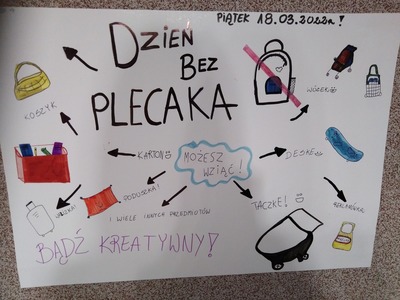 PIĄTEK 18.03.2022r!
DZIEŃ
BEZ
PLECAKA
KOSZYK
WÓZEK
KARTON
MOŻESZ
WZIĄĆ!
DESKĘ
PODUSZKA!
I WIELE INNYCH PRZEDMIOTÓW
TACZKĘ!
REKLAMÓWKĘ
BĄDŹ KREATYWNY!